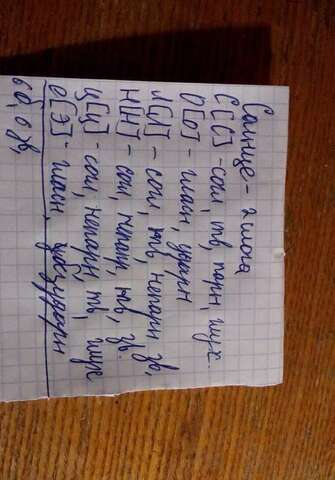 Солнце - 2 слога
С[С] - согл, тв, парн, глух.
О[о] - гласн, ударн
Л[л] - согл, тв, непарн зв,
Н[Н] - согл, непарн, тв, зв.
Ц[ц] - согл, непарн, тв, глух
е[Э] - гласн, безударн
6б, 0 зв,